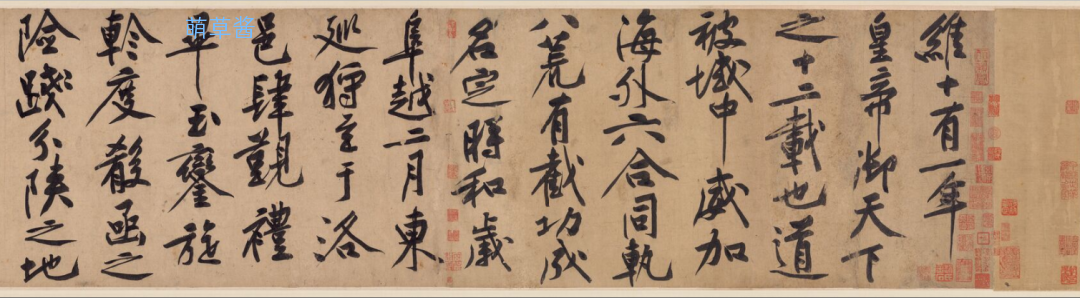 維十有一年
皇帝御天下
之十二載也道
被域中威加
海外六合同軌
八荒有截功成
名定時和歲
阜越二月東
巡狩至于洛
邑肆覲禮
畢玉鑾旋
軫度殽函之
險踐分陝之地
萌草酱